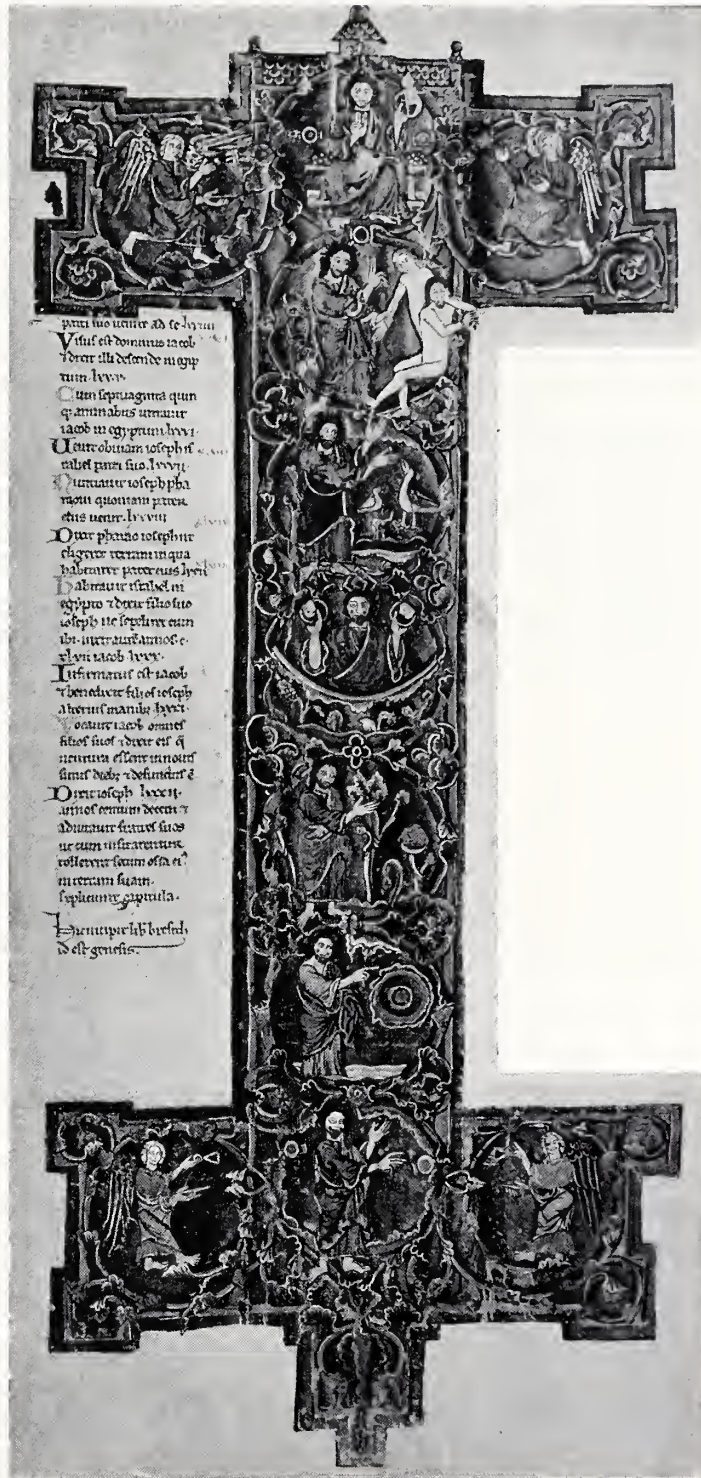 patri suo uenire ad se lxxiiii
Visus est dominus iacob
7 dixit illi descende in egip
tum lxxv
Cum septuaginta quin
q; animabus intrauit
iacob in egyptum lxxvi
Uenit obuiam ioseph is
rahel patri suo lxxvii
Nuntiauit ioseph pha
raoni quoniam pater
eius uenit lxxviii
Dixit pharao ioseph ut
eligeret terram in qua
habitaret pater eius
Habitauit israhel in
egypto 7 dixit filio suo
ioseph ne sepeliret eum
ibi
iacob lxxx
Infirmatus est iacob
7 benedixit filios ioseph
manib; lxxxi
Vocauit iacob omnes
filios suos 7 dixit eis q
uentura essent in nouis
simis dieb; 7 defunctus e
Dixit ioseph lxxxii
annos centum decem 7
adiurauit fratres suos
ut cum uisitarentur
tollerent secum ossa ei
in terram suam
Expliciunt capitula
Hic incipit lib bresith
id est genesis